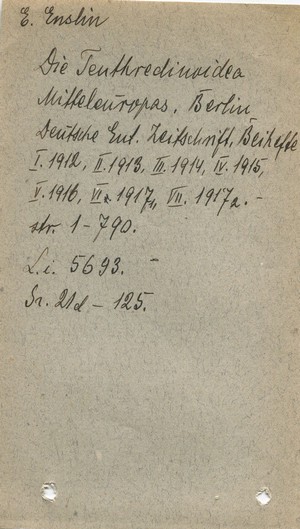 E. Enslin
Die Tenthredinoidea
Mitteleuropas, Berlin
Deutsche Ent. Zeitschrift, Beihefte
I. 1912, II. 1913, III. 1914, IV. 1915,
V. 1916, VI. 1917, VII. 1917a. -
str. 1-790.
L.i. 5693. -
Sr. 21d - 125.